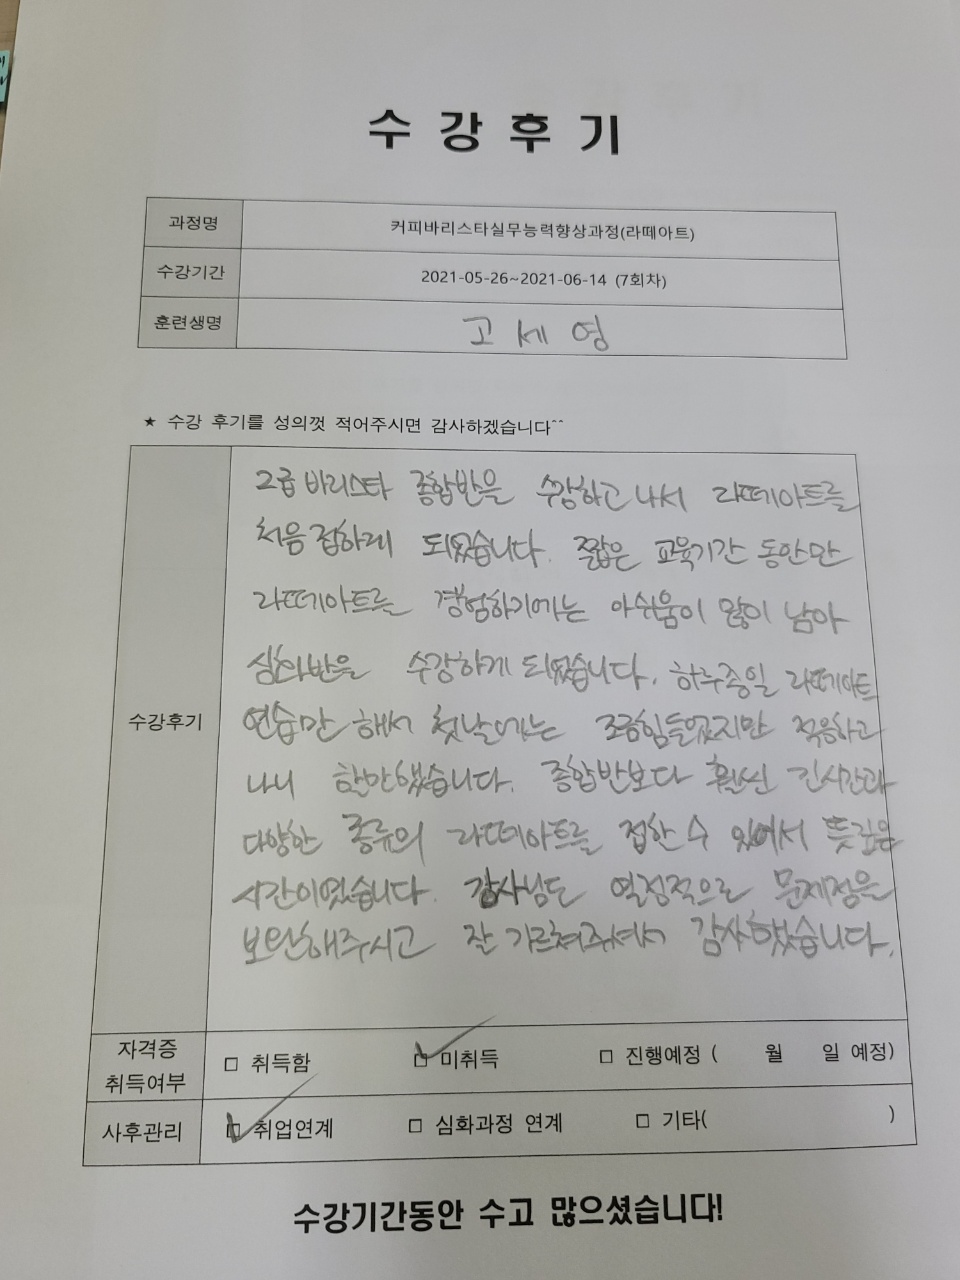 수 강 후 기
과정명 커피바리스타실무능력향상과정(라떼아트)
수강기간 2021-05-26~2021-06-14 (7회차)
훈련생명 고 세 영
★ 수강 후기를 성의껏 적어주시면 감사하겠습니다^^
2급 바리스타 종합반을 수강하고 나서 라떼아트를
처음 접하게 되었습니다. 짧은 교육기간 동안만
라떼아트를 경험하기에는 아쉬움이 많이 남아
심화반을 수강하게 되었습니다. 하루종일 라떼아트
수강후기
연습만 해서 첫날에는 조금힘들었지만 적응하고
나니 할만했습니다. 종합반보다 훨씬 긴시간과
다양한 종류의 라떼아트를 접한 수 있어서 뜻깊은
시간이였습니다. 강사님도 열정적으로 문제점을
보완해주시고 잘 가르쳐주셔서 감사했습니다.
자격증 취득여부 □ 취득함 □ 미취득 □ 진행예정 ( 월 일 예정)
사후관리 □ 취업연계 □ 심화과정 연계 □ 기타( )
수강기간동안 수고 많으셨습니다!